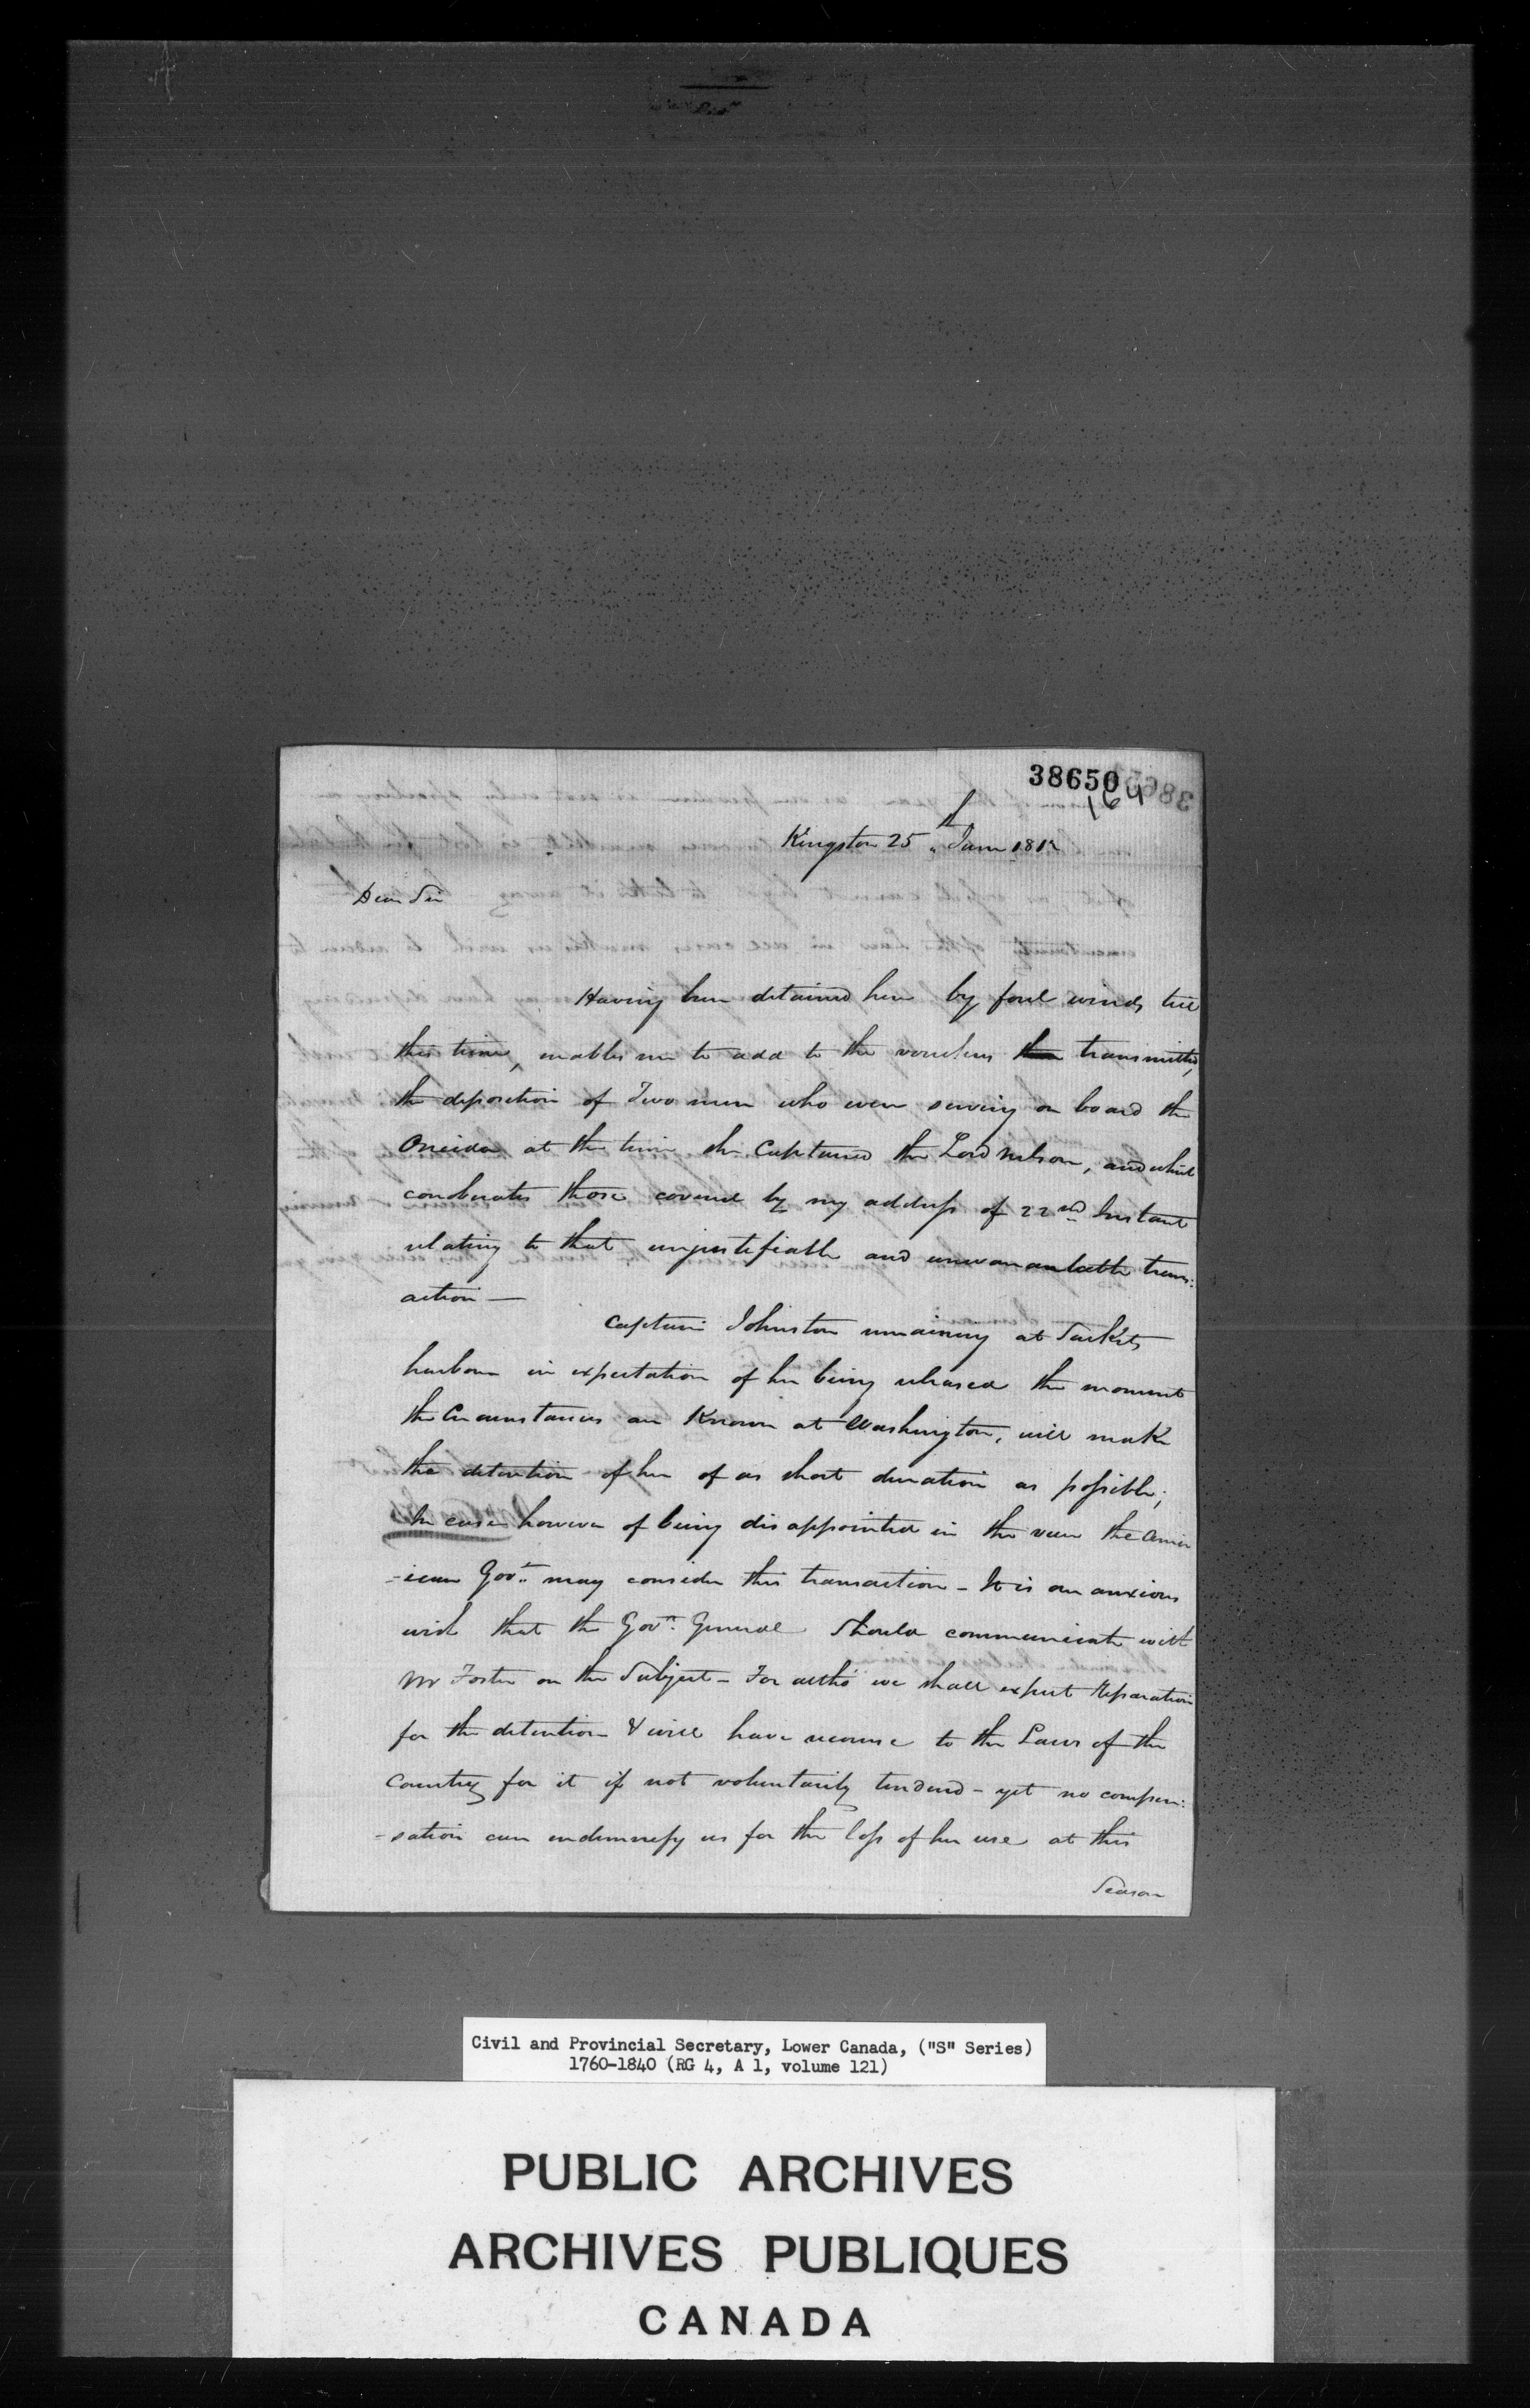 38650
164
Kingston 25th June 1812
Dear Sir
Having been detained here by foul winds till
this time, enables me to add to the vouchers then transmitted,
the deposition of Two men who were serving on board the
Oneida at the time she Captured the Lord Nelson, and which
coroberates those covered by my address of 22nd Instant
relating to that unjustifiable and unwarrantable trans:
action —
Captain Johnston remaining at Sackets
harbour in expectation of her being released the moment
the Circumstances are Known at Washington, will make
the detention of her of as short duration as possible;
In case however of being disappointed in the view the Amer
-ican Govt. may consider this transaction - It is our anxious
wish that the Govr. General should communicate with
Mr Foster on the Subject - For altho' we shall expect Reparation
for the detention & will have recourse to the Laws of the
Country for it if not voluntarily tendered - yet no compen:
-sation can indemnify us for the loss of her use at this
Season
Civil and Provincial Secretary, Lower Canada, ("S" Series)
1760-1840 (RG 4, A 1, volume 121)
PUBLIC ARCHIVES
ARCHIVES PUBLIQUES
CANADA